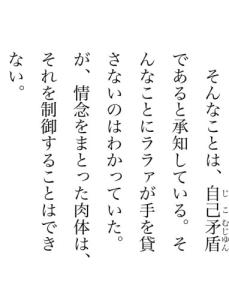 そんなことは、自己矛盾
であると承知している。そ
んなことにララァが手を貸
さないのはわかっていた。
が、情念をまとった肉体は、
それを制御することはでき
ない。